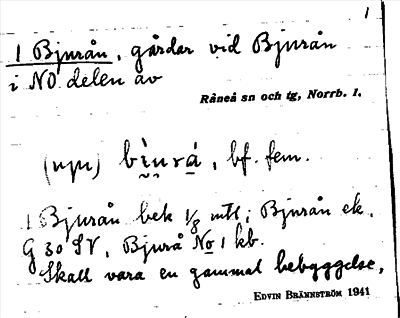 1
1 Bjurån, gårdar vid Bjurån
i NO delen av
Råneå sn och tg, Norrb. l.
bf. fem.
1 Bjurån bek 1/8 mtl; Bjurån ek.
G 30 SV, Bjurå No 1 kb.
Skall vara en gammal bebyggelse,
EDVIN BRÄNNSTRÖM 1941